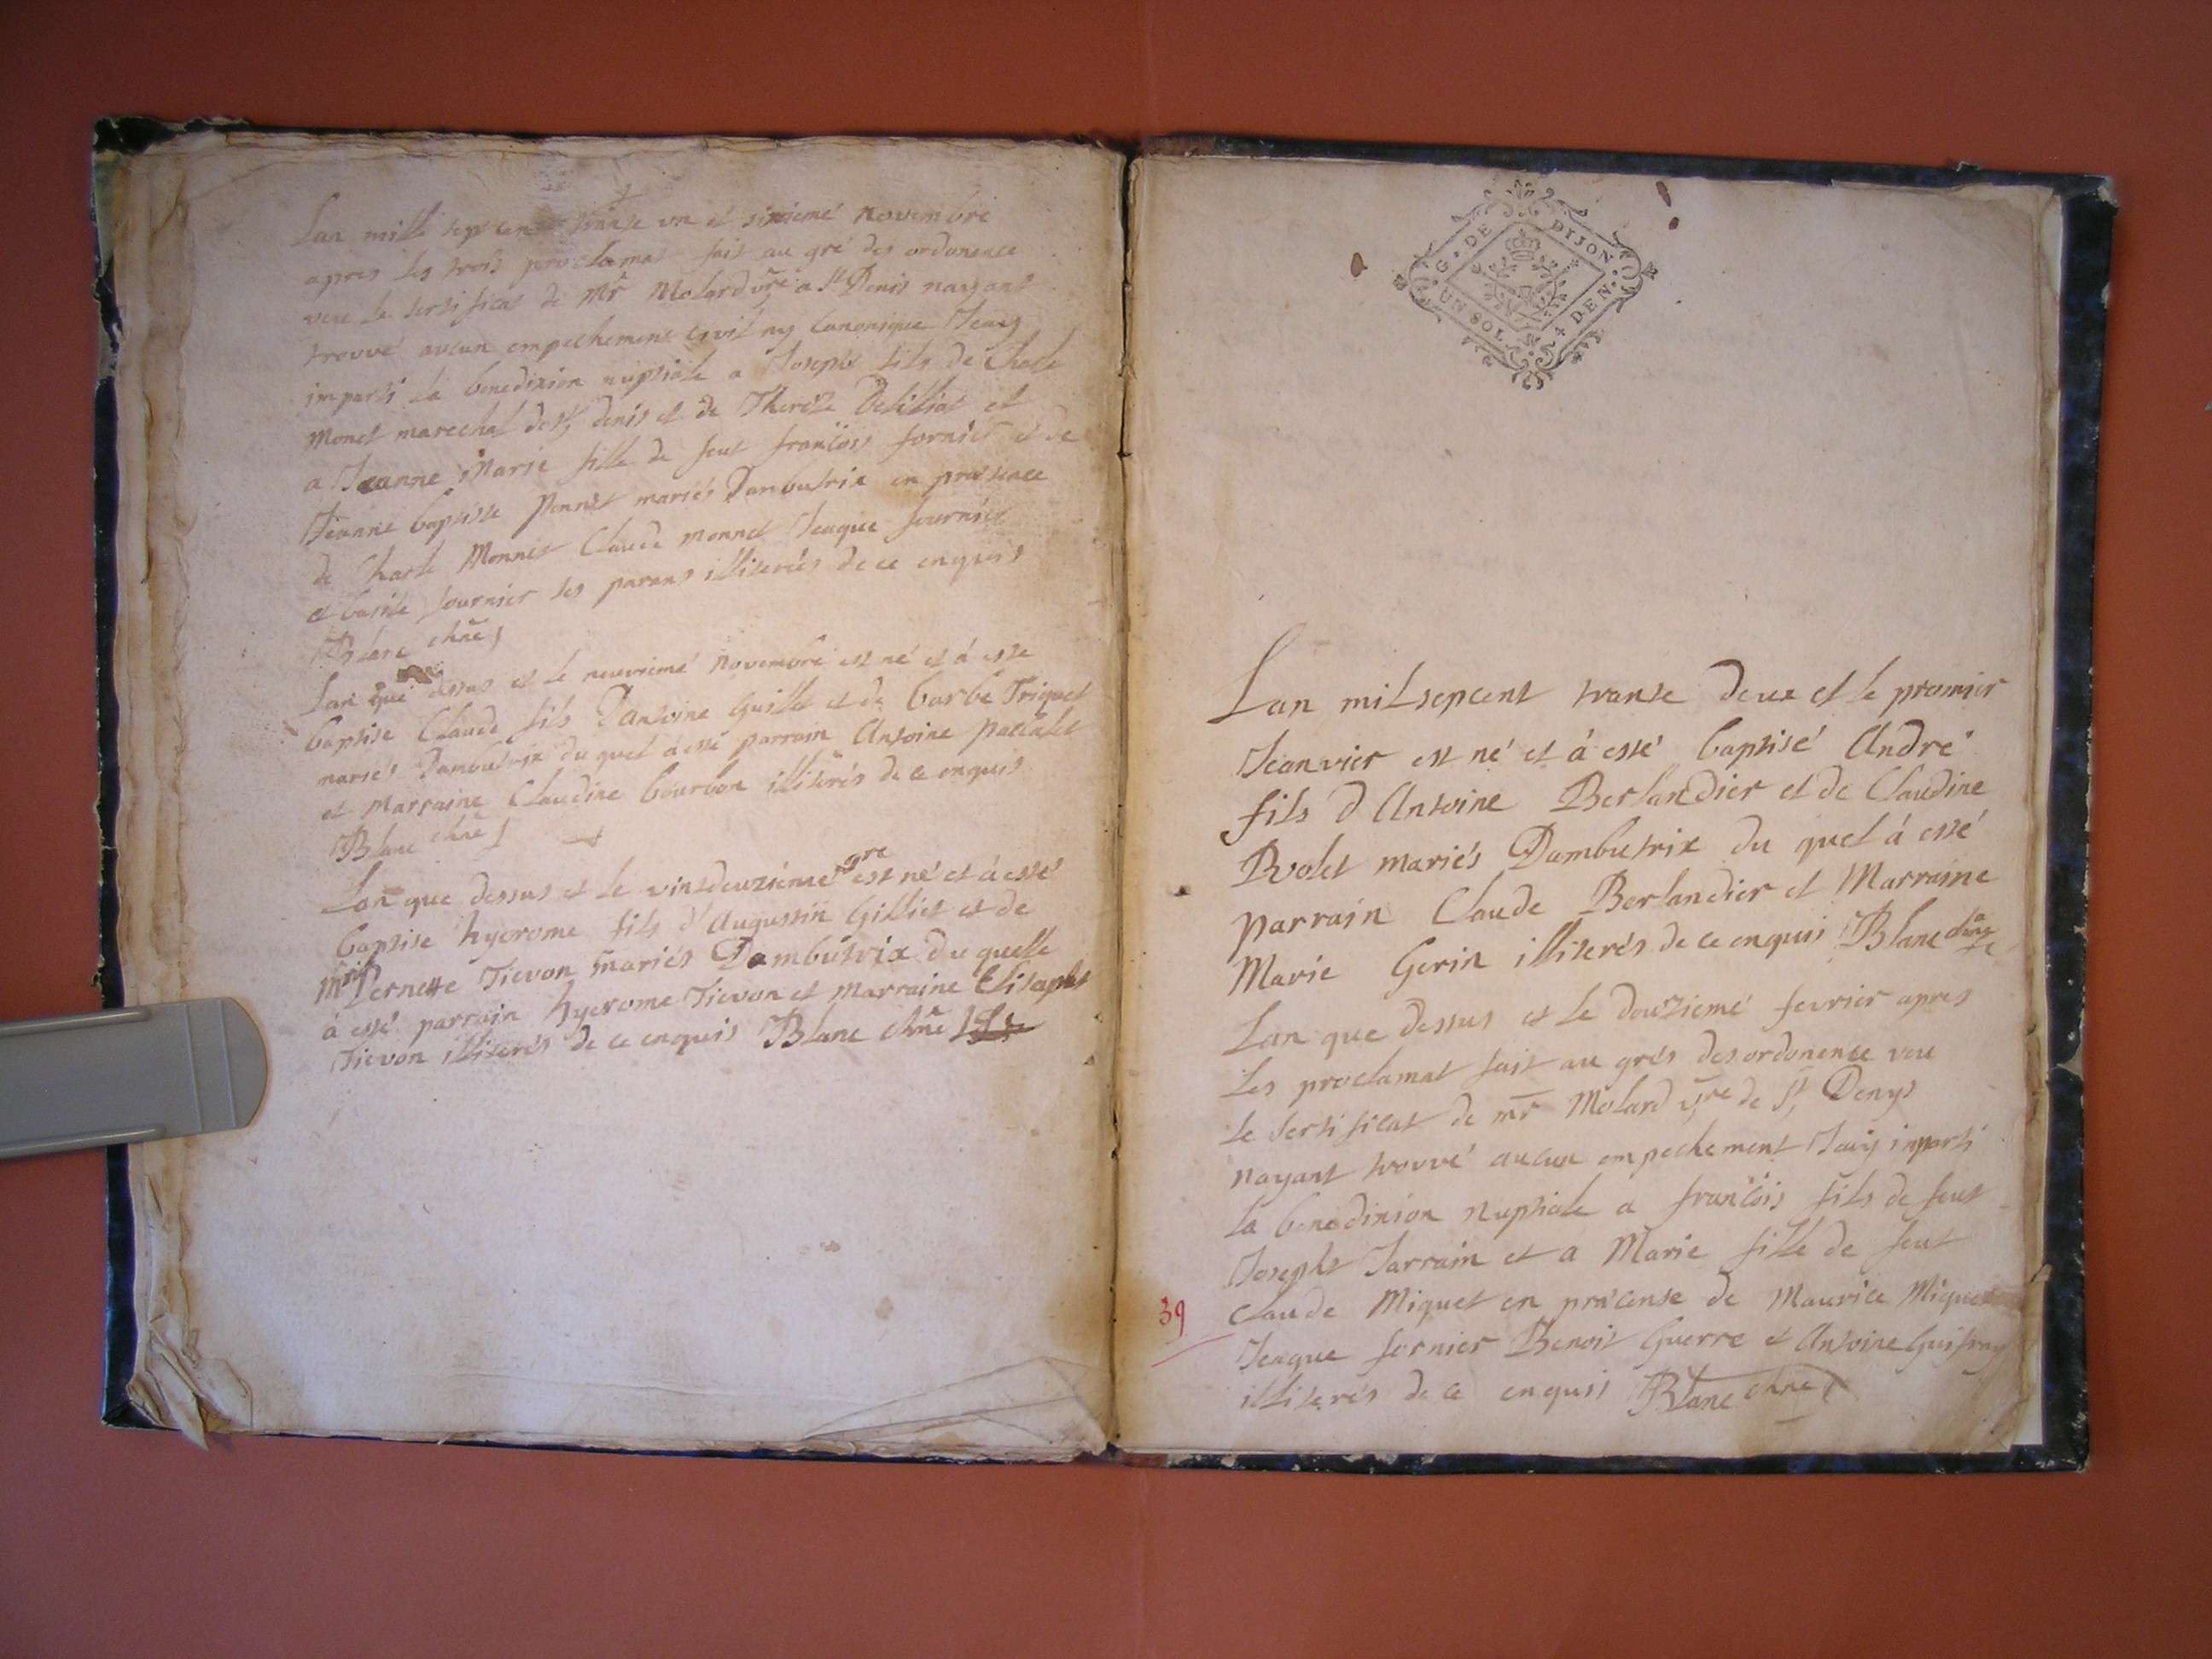 Lan mille septcent trante un et sixiemé novembre
apres les trois proclamat fait au gré des ordonence
veu le sertificat de Mr Molard vre a St Denis nayant
trouvé aucun empechement cyvil ny canonique Jeaÿ
imparti la benedixion nuptiale a Joseph fils de Charle
Monet marechal de St denis et de Thereze et
a Jeanne Marie fille de feut francois fornier et de
Jeanne baptiste Ponnet mariés Dambutrix en presence
de Charle Monnet Claude monnet Jeaque fournier
et basile fournier ses parans illiterés de ce enquis
Blanc chne
Lan que dessus et le neuviemé novembre est né et á esté
baptise Claude fils Dantoine Guillet et de barbe Triquet
mariés Dambutrix du quel á esté parrain Antoine
et Marraine Claudine bourbon illiterés de ce enquis
Blanc chne
Lan que dessus et le vintdeuziéme 9re est né et á esté
baptise hyerome fils d'Augustin Gilliet et de
Pernette Tievon mariés Dambutrix du quelle
á esté parrain hyerome Tievon et marraine Elisapht
Tievon illiterés de ce enquis Blanc chne
G. DE DIJON
UN SOL 4 DEN.
Lan milsepcent trante deux et le premier
Jeanvier est né et á esté baptisé André
fils d Antoine Berlandier et de Claudine
Rolet mariés Dambutrix du quel á esté
parrain Claude Berlandier et Marraine
Marie Gerin illiterés de ce enquis Blanc chne
Lan que dessus et le douziemé fevrier apres
les proclamat fait au grés des ordonence veu
le sertificat de mr Molard vre de St Denys
nayant trouvé aucun empechement Jeaÿ inparti
la benedixion nuptiale a francois fils de feut
Josepht Jarrain et a Marie fille de feut
39
Claude Miquet en présense de Maurice Miquet
Jeaque fornier Benoit Guerre et Antoine Guifray
illiterés de ce enquis Blanc chne